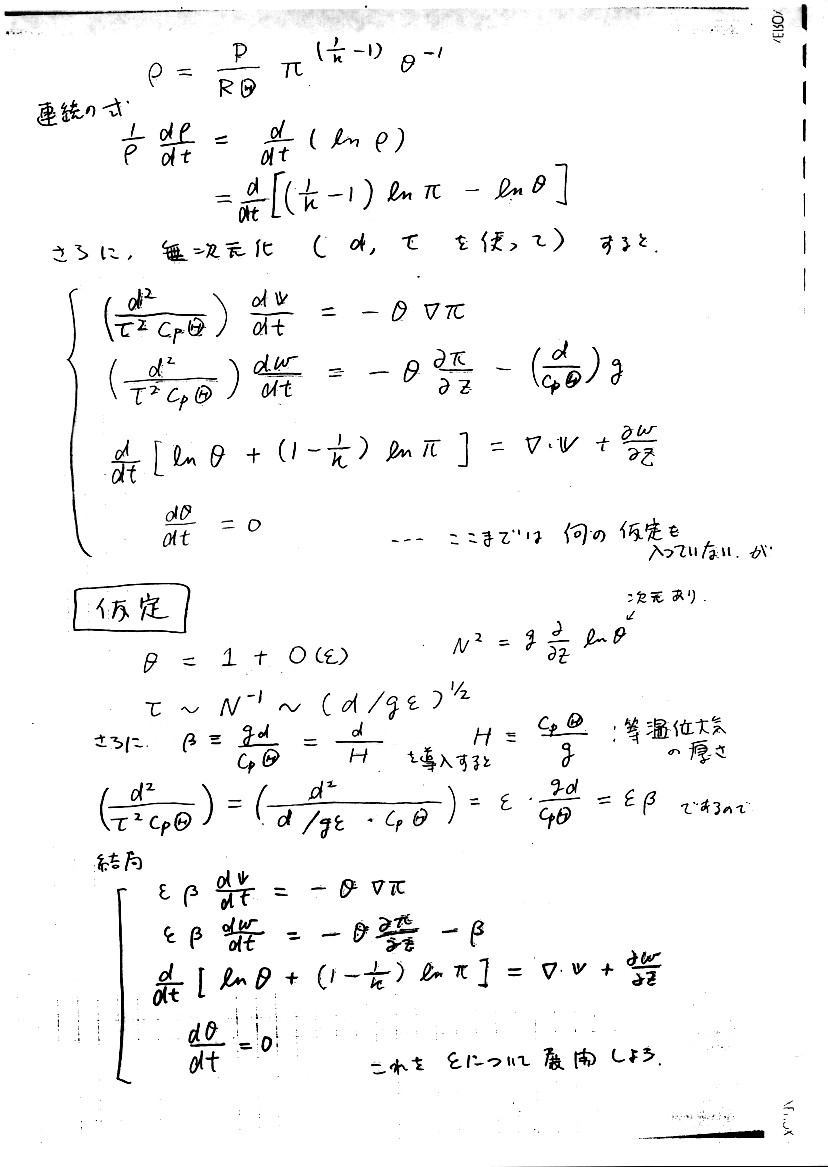 ρ = P/(RΘ) π^(1/κ - 1) θ^-1
連続の式
1/ρ dρ/dt = d/dt (ln ρ)
= d/dt [(1/κ - 1) ln π - ln θ]
さらに, 無次元化 ( d, τ を使って) すると.
(d²/(τ² Cp Θ)) dV/dt = - θ ∇π
(d²/(τ² Cp Θ)) dw/dt = - θ ∂π/∂z - (d/(CpΘ)) g
d/dt [ ln θ + (1 - 1/κ) ln π ] = ∇·V + ∂w/∂z
dθ/dt = 0 --- ここまでは 何の 仮定も
入っていない. が
仮定
次元あり.
θ = 1 + O(ε) N² = g ∂/∂z ln θ
τ ~ N^-1 ~ (d/gε)^1/2
さらに. β ≡ gd/(CpΘ) = d/H を導入すると H ≡ CpΘ/g : 等温位大気
の厚さ
(d²/(τ² CpΘ)) = (d²/(d/gε · CpΘ)) = ε · gd/(CpΘ) = εβ であるので
結局
εβ dV/dt = - θ ∇π
εβ dw/dt = - θ ∂π/∂z - β
d/dt [ ln θ + (1 - 1/κ) ln π ] = ∇·V + ∂w/∂z
dθ/dt = 0
これを εについて 展開 しよう.